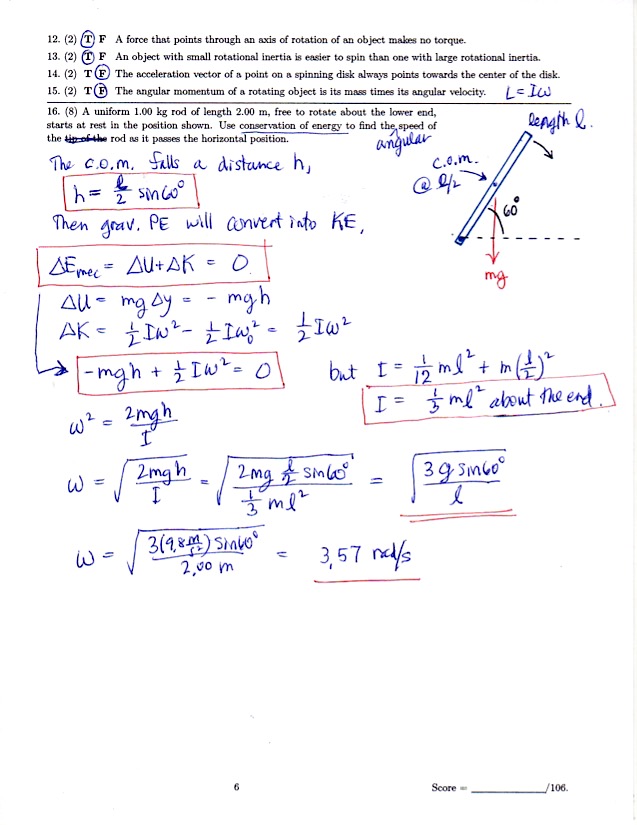 12. (2) T F A force that points through an axis of rotation of an object makes no torque.
13. (2) T F An object with small rotational inertia is easier to spin than one with large rotational inertia.
14. (2) T F The acceleration vector of a point on a spinning disk always points towards the center of the disk.
15. (2) T F The angular momentum of a rotating object is its mass times its angular velocity. L = Iω
16. (8) A uniform 1.00 kg rod of length 2.00 m, free to rotate about the lower end,
starts at rest in the position shown. Use conservation of energy to find the angular speed of
the tip of the rod as it passes the horizontal position.
length l.
The c.o.m. falls a distance h,
c.o.m.
@ l/2
h = l/2 sin60°
60°
Then grav. PE will convert into KE,
mg
ΔEmec = ΔU + ΔK = 0.
ΔU = mgΔy = - mgh
ΔK = 1/2 Iω² - 1/2 Iω₀² = 1/2 Iω²
-mgh + 1/2 Iω² = 0
but I = 1/12 ml² + m(l/2)²
I = 1/3 ml² about the end.
ω² = 2mgh/I
ω = √(2mgh/I) = √(2mg l/2 sin60° / 1/3 ml²) = √(3g sin60°/l)
ω = √(3(9,8 m/s²) sin60° / 2,00 m) = 3,57 rad/s
6
Score = /106.